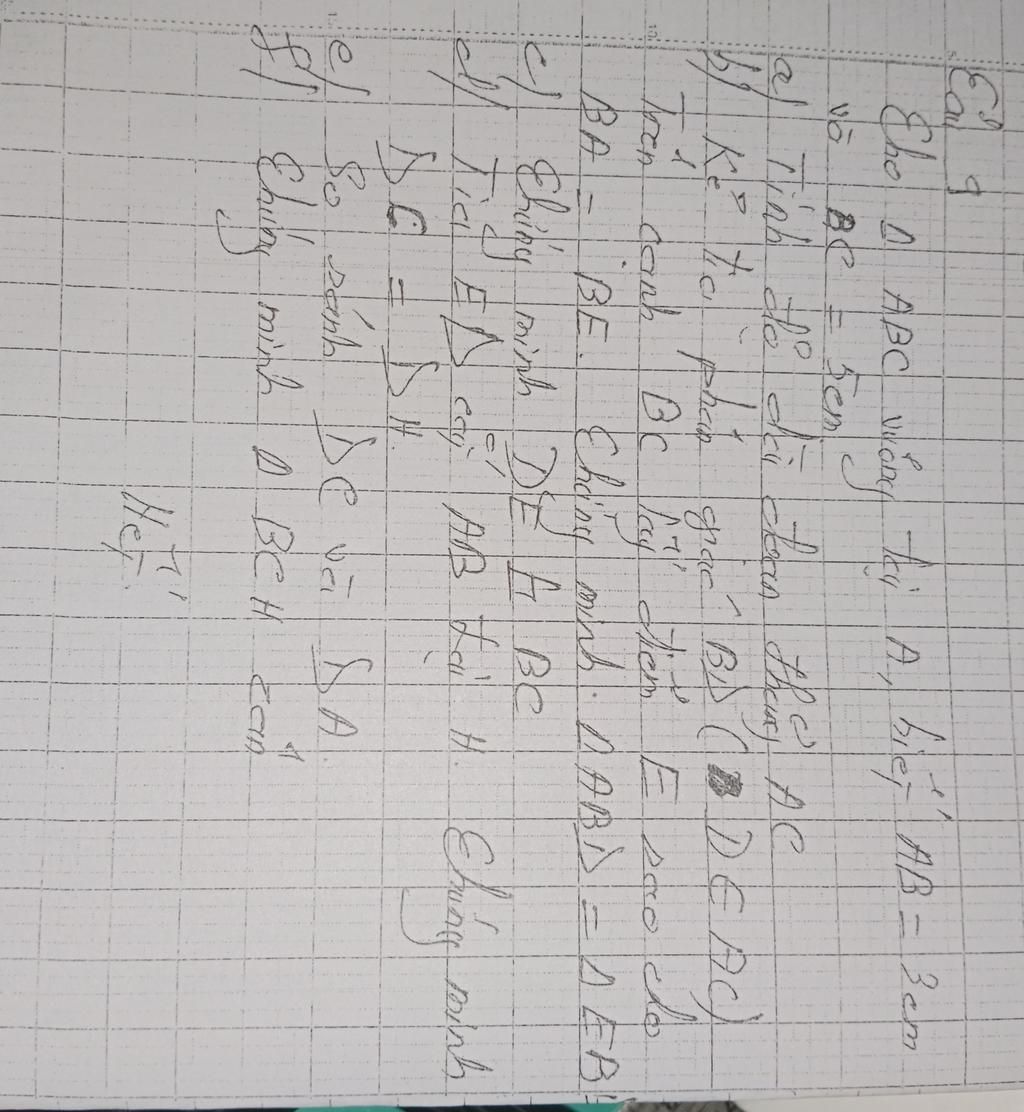 Câu 9
Cho Δ ABC vuông tại A, biết AB = 3cm
và BC = 5cm
a) Tính độ dài đoạn thẳng AC
b) Kẻ tia phân giác BD ( D ∈ AC)
Trên cạnh BC lấy điểm E sao cho
BA = BE. Chứng minh. Δ ABD = Δ EBD
c) Chứng minh DE ⊥ BC
d) Tia ED cắt AB tại H. Chứng minh
DC = DH.
e) So sánh DC và DA.
f) Chứng minh Δ BCH cân
Hết.